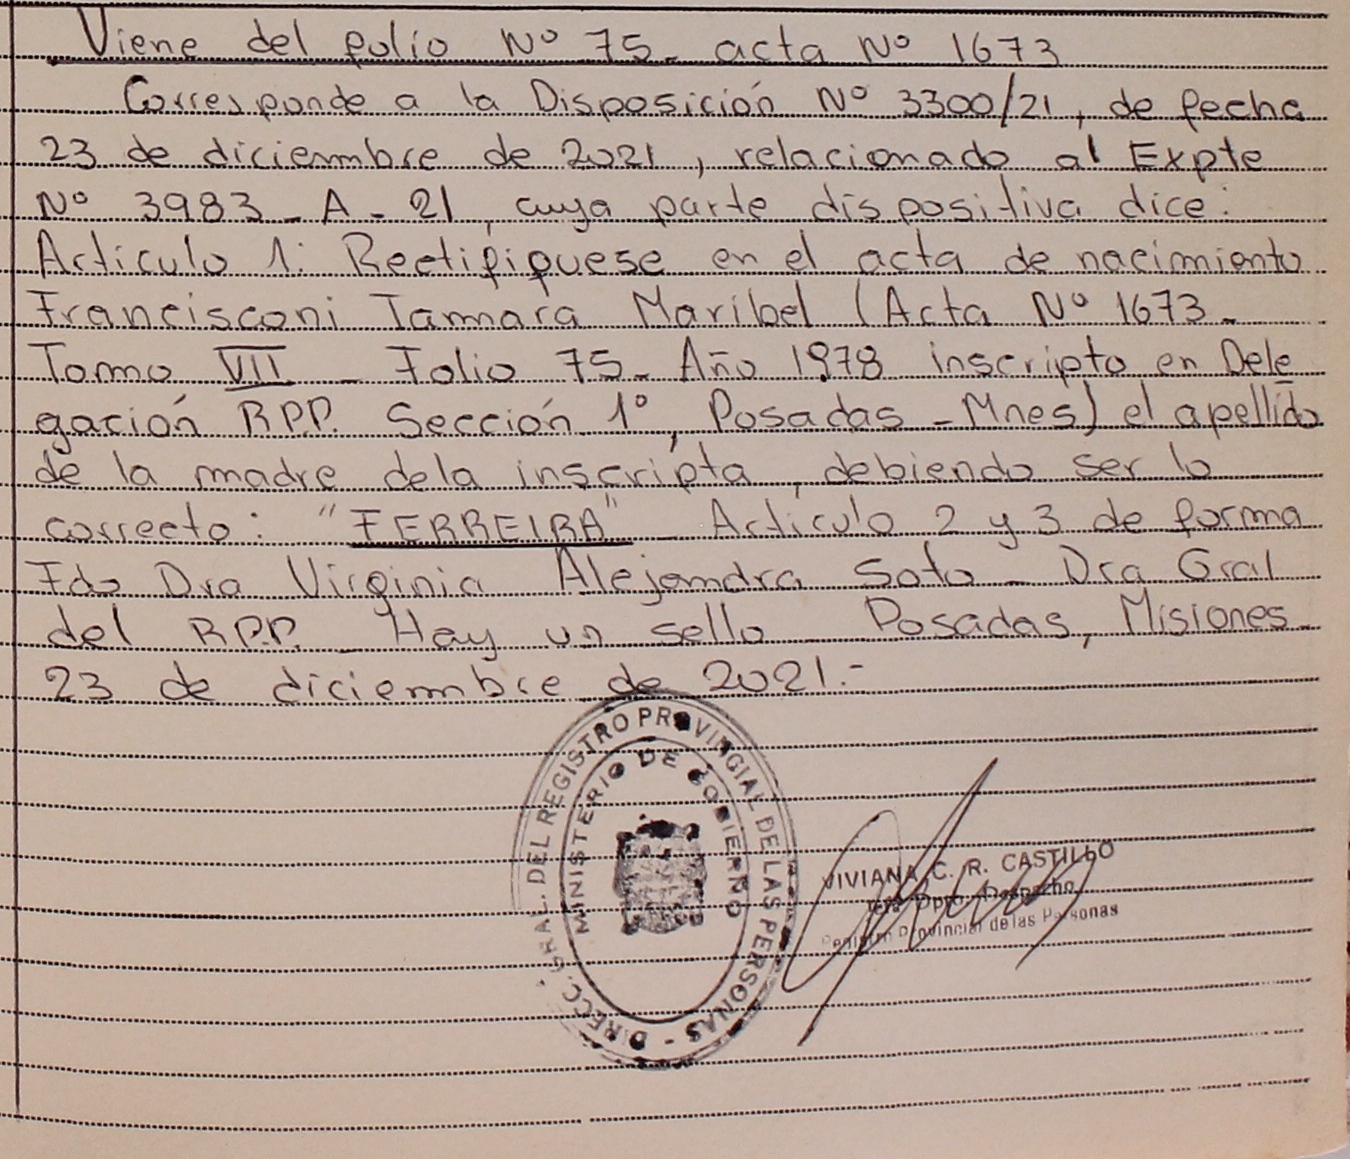 Viene del folio Nº 75- acta Nº 1673
Corresponde a la Disposición Nº 3300/21, de fecha
23 de diciembre de 2021, relacionado al Expte
Nº 3983 - A - 21, cuya parte dispositiva dice:
Articulo 1: Rectifiquese en el acta de nacimiento
Francisconi Tamara Maribel (Acta Nº 1673 -
Tomo VII - Folio 75- Año 1978 inscripto en Dele
gación R.P.P. Sección 1º, Posadas - Mnes) el apellido
de la madre dela inscripta, debiendo ser lo
correcto: "FERREIRA" - Articulo 2 y 3 de forma
Fdo Dra Virginia Alejandra Soto - Dra Gral
del R.P.P. - Hay un sello - Posadas, Misiones -
23 de diciembre de 2021.-
DIRECC. GRAL. DEL REGISTRO PROVINCIAL DE LAS PERSONAS -
MINISTERIO DE GOBIERNO
VIVIANA C. R. CASTILLO
Jefa Dpto. Despacho
Registro Provincial de las Personas